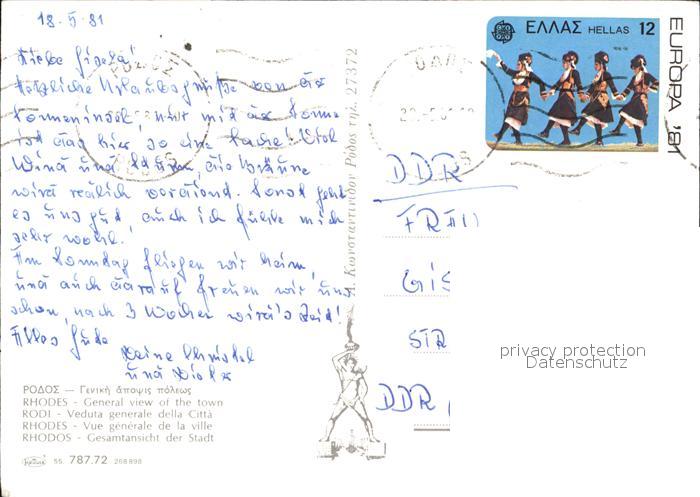 18.5.81
Liebe Gisela!
Herzliche Urlaubsgrüße von der
Sonneninsel, nur mit der Sonne
ist das hier so eine Sache! Viel
Wind und die Bräune
wird redlich verdient. Sonst geht
es uns gut, auch ich fühle mich
sehr wohl.
Am Sonntag fliegen wir heim,
und auch darauf freuen wir uns
schon, nach 3 Wochen wird's Zeit!
Alles Gute
Deine Christel
und Dieter
ΡΟΔΟΣ — Γενική ἄποψις πόλεως
RHODES - General view of the town
RODI - Veduta generale della Città
RHODES - Vue générale de la ville
RHODOS - Gesamtansicht der Stadt
55. 787.72 268898
Α. Κωνσταντινίδου Ρόδος τηλ. 27372
ΕΛΛΑΣ HELLAS 12
EUROPA '81
DDR
FRAU
GIS
STR
DDR
privacy protection
Datenschutz